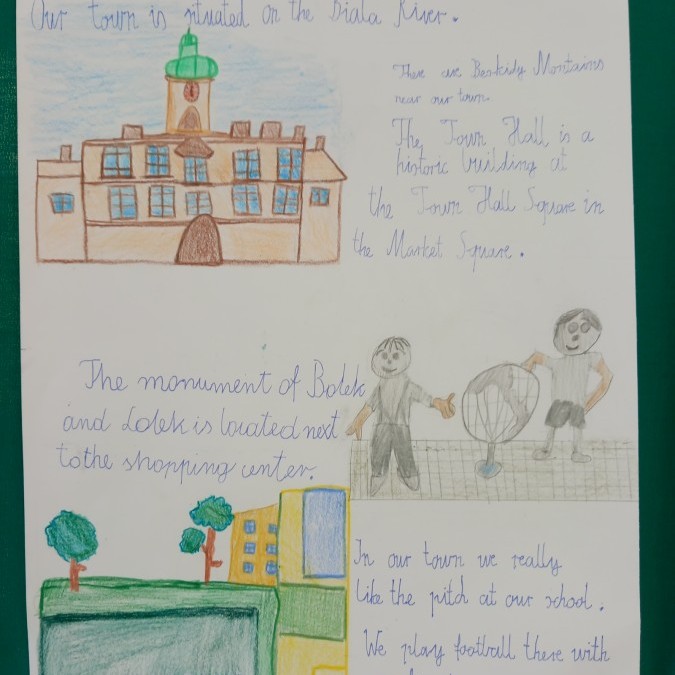 Our town is situated on the Biała River.
There are Beskidy Montains
near our town.
The Town Hall is a
historic building at
the Town Hall Square in
the Market Square.
The monument of Bolek
and Lolek is located next
to the shopping center.
In our town we really
like the pitch at our school.
We play football there with